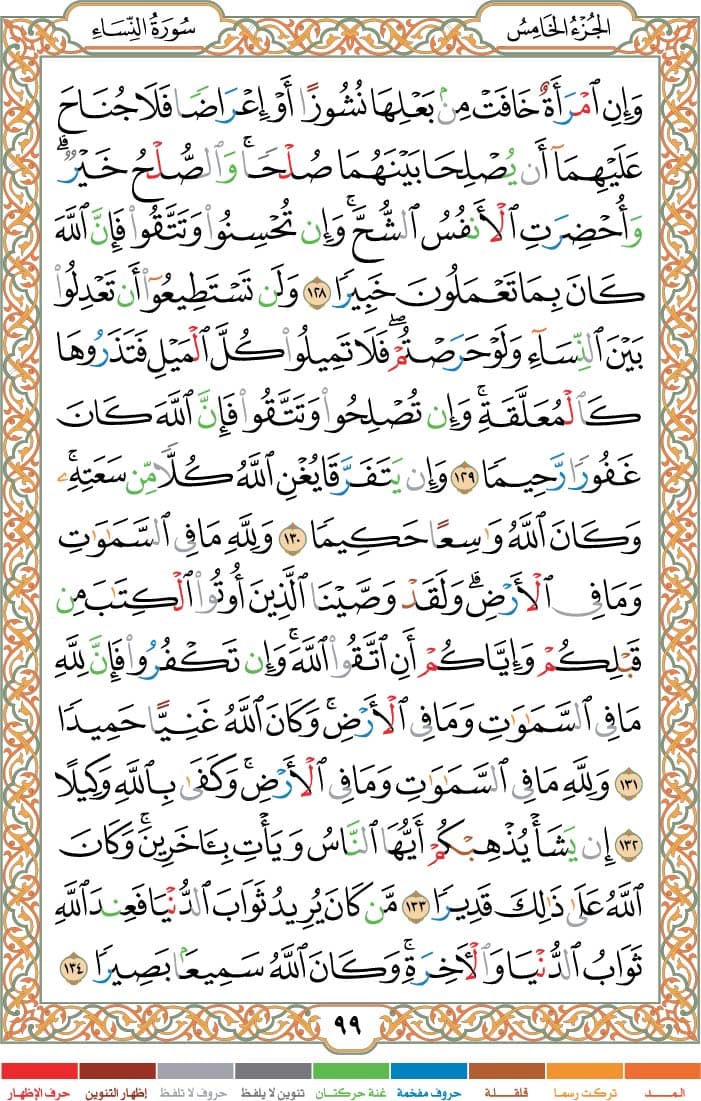 الجُزْءُ الخَامِسُ
سُورَةُ النِّسَاءِ
وَإِنِ ٱمْرَأَةٌ خَافَتْ مِنۢ بَعْلِهَا نُشُوزًا أَوْ إِعْرَاضًا فَلَا جُنَاحَ
عَلَيْهِمَآ أَن يُصْلِحَا بَيْنَهُمَا صُلْحًا ۚ وَٱلصُّلْحُ خَيْرٌ ۗ
وَأُحْضِرَتِ ٱلْأَنفُسُ ٱلشُّحَّ ۚ وَإِن تُحْسِنُوا۟ وَتَتَّقُوا۟ فَإِنَّ ٱللَّهَ
كَانَ بِمَا تَعْمَلُونَ خَبِيرًا ١٢٨ وَلَن تَسْتَطِيعُوٓا۟ أَن تَعْدِلُوا۟
بَيْنَ ٱلنِّسَآءِ وَلَوْ حَرَصْتُمْ ۖ فَلَا تَمِيلُوا۟ كُلَّ ٱلْمَيْلِ فَتَذَرُوهَا
كَٱلْمُعَلَّقَةِ ۚ وَإِن تُصْلِحُوا۟ وَتَتَّقُوا۟ فَإِنَّ ٱللَّهَ كَانَ
غَفُورًا رَّحِيمًا ١٢٩ وَإِن يَتَفَرَّقَا يُغْنِ ٱللَّهُ كُلًّا مِّن سَعَتِهِۦ ۚ
وَكَانَ ٱللَّهُ وَٰسِعًا حَكِيمًا ١٣٠ وَلِلَّهِ مَا فِى ٱلسَّمَٰوَٰتِ
وَمَا فِى ٱلْأَرْضِ ۗ وَلَقَدْ وَصَّيْنَا ٱلَّذِينَ أُوتُوا۟ ٱلْكِتَٰبَ مِن
قَبْلِكُمْ وَإِيَّاكُمْ أَنِ ٱتَّقُوا۟ ٱللَّهَ ۚ وَإِن تَكْفُرُوا۟ فَإِنَّ لِلَّهِ
مَا فِى ٱلسَّمَٰوَٰتِ وَمَا فِى ٱلْأَرْضِ ۚ وَكَانَ ٱللَّهُ غَنِيًّا حَمِيدًا
١٣١ وَلِلَّهِ مَا فِى ٱلسَّمَٰوَٰتِ وَمَا فِى ٱلْأَرْضِ ۚ وَكَفَىٰ بِٱللَّهِ وَكِيلًا
١٣٢ إِن يَشَأْ يُذْهِبْكُمْ أَيُّهَا ٱلنَّاسُ وَيَأْتِ بِـَٔاخَرِينَ ۚ وَكَانَ
ٱللَّهُ عَلَىٰ ذَٰلِكَ قَدِيرًا ١٣٣ مَّن كَانَ يُرِيدُ ثَوَابَ ٱلدُّنْيَا فَعِندَ ٱللَّهِ
ثَوَابُ ٱلدُّنْيَا وَٱلْأَخِرَةِ ۚ وَكَانَ ٱللَّهُ سَمِيعًۢا بَصِيرًا ١٣٤
٩٩
المــــد تركت رسما قلقـــلة حروف مفخمة غنة حركتان تنوين لا يلفظ حروف لا تلفظ إظهار التنوين حرف الإظهار